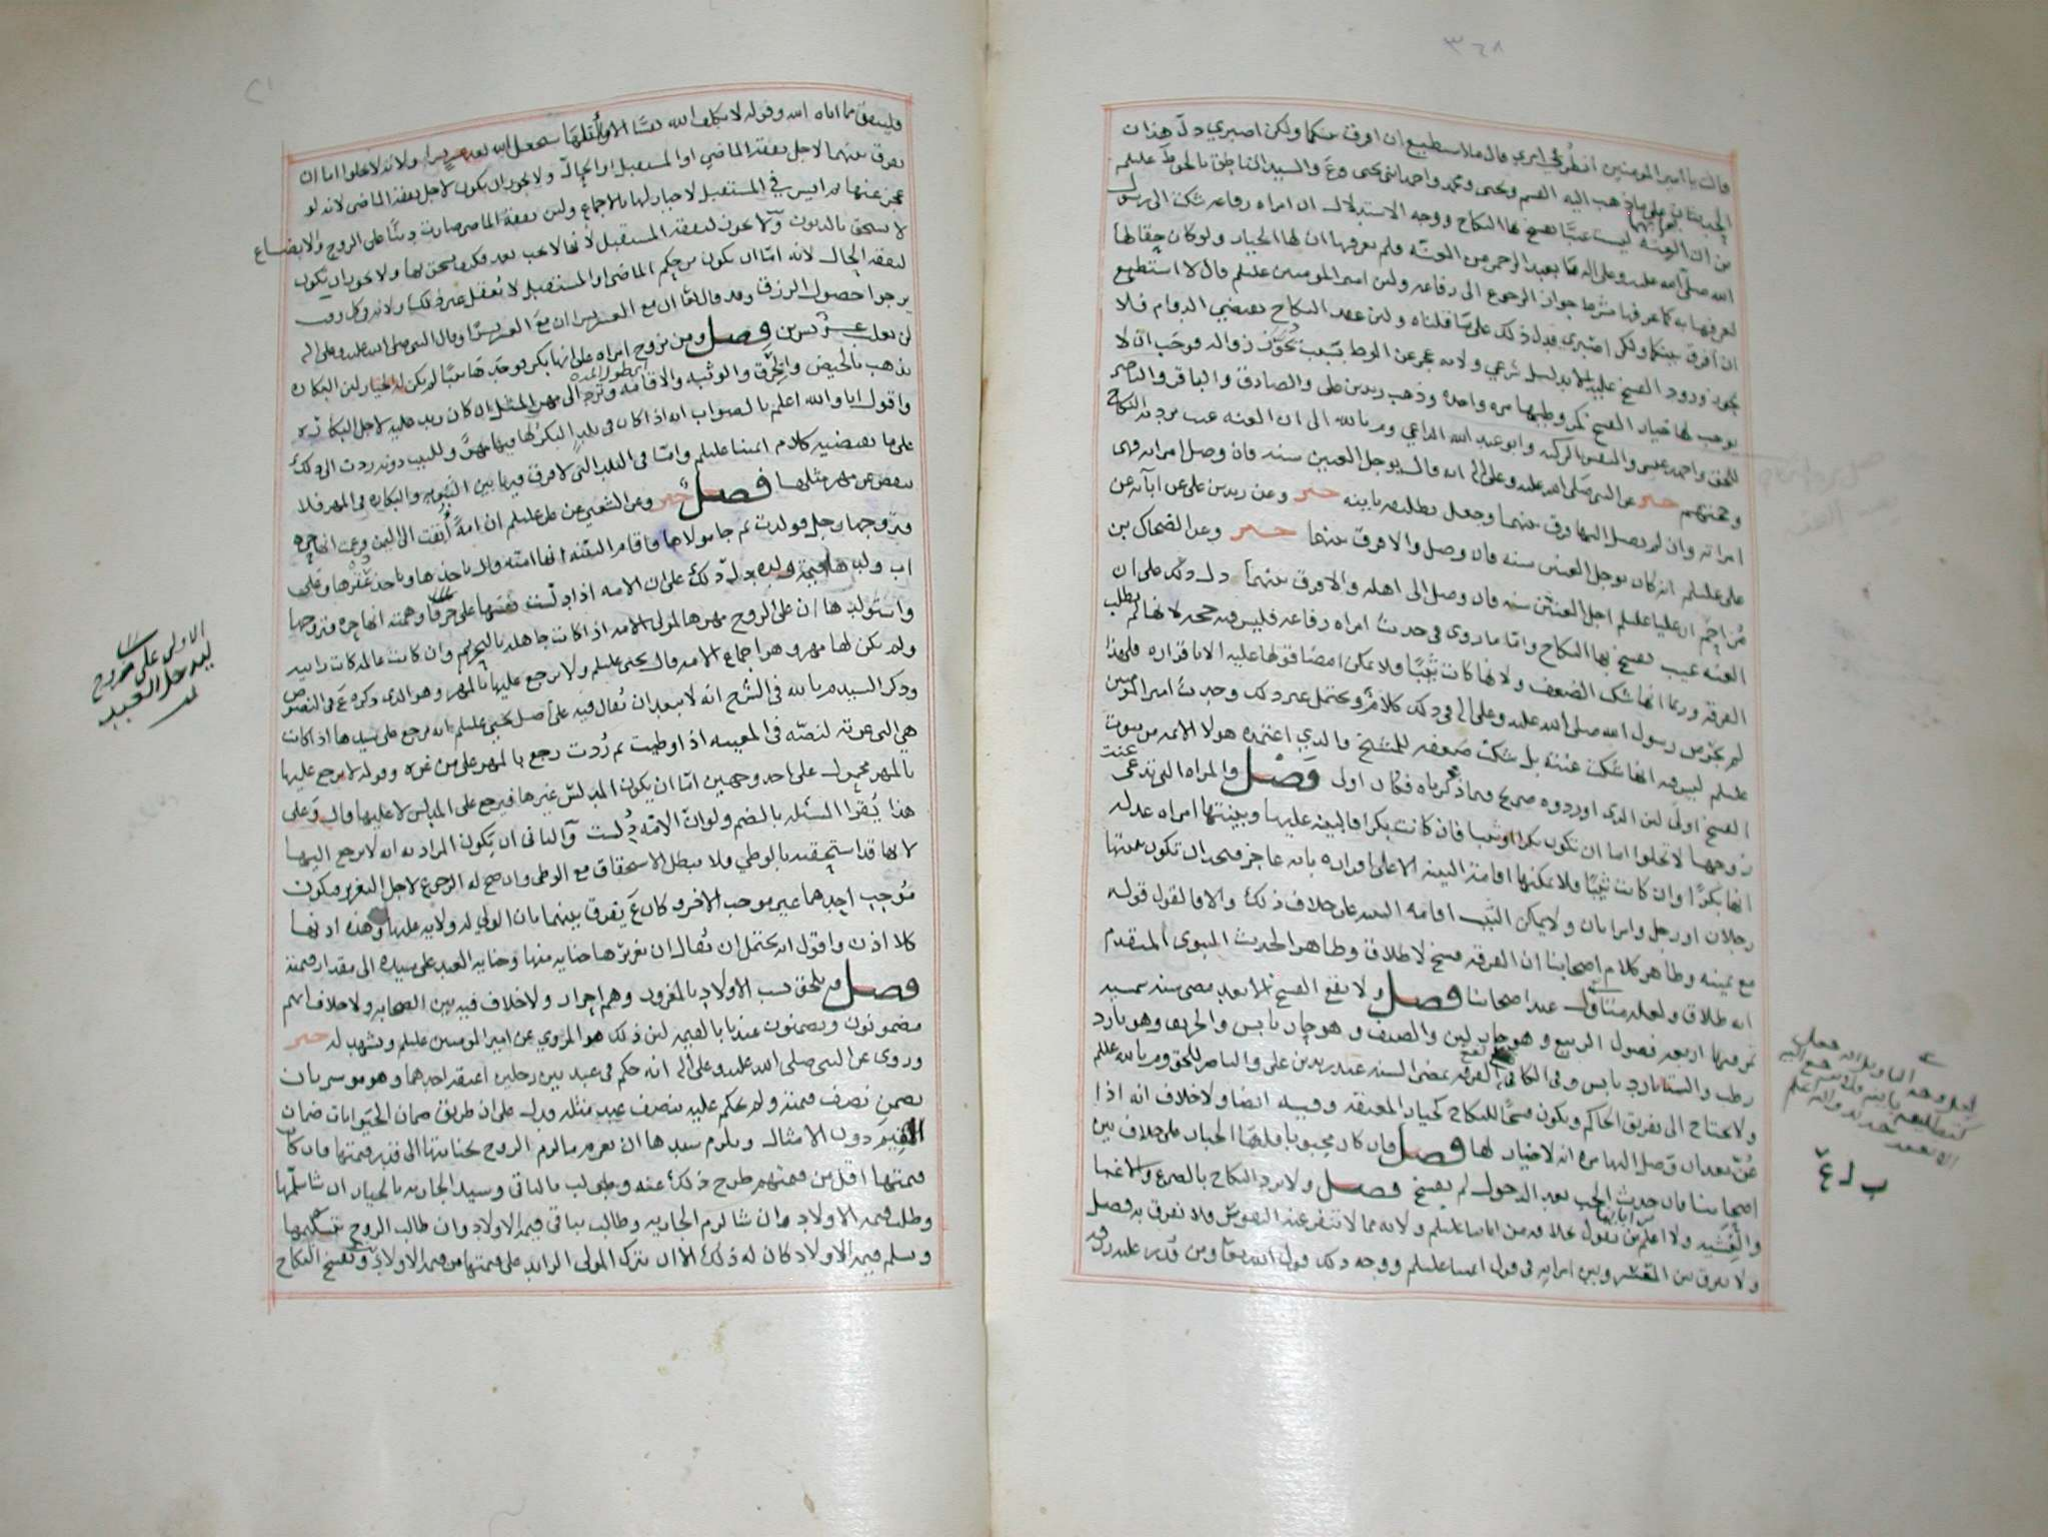 ٣٦٨
قالت يا امير المومنين انظر في امري قال ما استطيع ان افرق بينكما ولكن اصبري دل هذان
على ما ذهب اليه القسم ويحيى ومحمد واحمد ابني يحيى وع والسيد الناطق بالحق عليلم
من ان العنه ليست عيبا يفسخ لها النكاح ووجه الاستدلال ان امراه رفاعه شكت الى رسول
الله صلى الله عليه وعلى اله ما بعبد الرحمن من العنه ولم يعرفها ان لها الخيار ولو كان حقا لها
لعرفها به كما عرفها جواز الرجوع الى رفاعه ولن امير المومنين عليلم قال لا استطيع
ان افرق بينكما ولكن اصبري فدل ذلك على ما قلناه ولن عقد النكاح يقتضي الدوام فلا
يجوز ورود الفسخ عليه الا بدليل شرعي ولانه عجز عن الوطء بسبب يجوز زواله فوجب ان لا
يوجب لها خيار الفسخ كمن وطيها مره واحده وذهب زيد بن علي والصادق والباقر والناصر
للحق واحمد بن عيسى والنفس الزكيه وابو عبد الله الداعي وم بالله الى ان العنه عيب يرد به النكاح
وحجتهم خبر عن النبي صلى الله عليه وعلى اله انه قال يوجل العنين سنه فان وصل امراته فهي
امراته وان لم يصل اليها فرق بينهما وجعل تطليقه باينه خبر وعن زيد بن علي عن آبائه عن
علي عليلم انه كان يوجل العنين سنه فان وصل والا فرق بينهما خبر وعن الضحاك بن
مزاحم ان عليا عليلم اجل العنين سنه فان وصل الى اهله والا فرق بينهما دل ذلك على ان
العنه عيب يفسخ بها النكاح واما ما روي في حديث امراه رفاعه فليس فيه حجه لانها لم تطلب
الفرقه وربما انها شكت الضعف ولانها كانت ثيبا ولا يمكن امضا قولها عليه الا باقراره فلهذا
لم يجز من رسول الله صلى الله عليه وعلى اله في ذلك كلام ويحتمل غير ذلك وحديث امير المومنين
عليلم ليس فيه انها شكت عنته بل شكت ضعفه للشيخ والذي اعتمده هولا الائمه من ثبوت
الفسخ اولى لن الذي اوردوه صريح فيما ذكرناه فكان اولى فصل والمراه التي تدعي عنت
زوجها لا تخلوا اما ان تكون بكرا او ثيبا فان كانت بكرا فالبينه عليها وبينتها امراه عدله
انها بكرا وان كانت ثيبا فلا يمكنها اقامة البينه الا على اقراره بانه عاجز فيجب ان تكون بينتها
رجلان او رجل وامراتان ولا يمكن الثيب اقامه البينه على خلاف ذلك والا فالقول قوله
مع يمينه وظاهر كلام اصحابنا ان الفرقه فسخ لا طلاق وظاهر الحديث النبوي المتقدم
انه طلاق ولعله متناول عند اصحابنا فصل ولا يقع الفسخ الا بعد مضي سنه شمسيه
تمر فيها اربعه فصول الربيع وهو حار لين والصيف وهو حار يابس والخريف وهو بارد
رطب والشتا بارد يابس وفي الكافي تقع الفرقه بمضي السنه عند زيد بن علي والناصر للحق وم بالله عليلم
ولا يحتاج الى تفريق الحاكم ويكون فسخا للنكاح كخيار المعتقه وفيه ايضا ولا خلاف انه اذا
عن بعد ان وصل اليها مره انه لا خيار لها فصل فان كان مجبوبا فلها الخيار على خلاف بين
اصحابنا فان حدث الجب بعد الدخول لم يفسخ فصل ولا يرد النكاح بالصرع والاغما
والغشيه ولا اعلم من يقول بخلافه من ائمتنا عليلم ولانه مما لا تنفر عنه النفوس فلا تفرق به فصل
ولا يفرق بين المعسر وبين امراته في قول ائمتنا عليلم ووجه ذلك قول الله تعا ومن قدر عليه رزقه
فلينفق مما اتاه الله وقوله لا يكلف الله نفسا الا ما اتاها سيجعل الله بعد عسر يسرا ولانه لا يخلوا اما ان
يفرق بينهما لاجل نفقه الماضي او المستقبل او الحال ولا يجوز ان يكون لاجل نفقه الماضي لانه لو
عجز عنها وايس في المستقبل لا خيار لها بالاجماع ولن نفقة الماضي صارت دينا على الزوج والابضاع
لا تستحق بالديون ولا يجوز لنفقه المستقبل لانها لا تجب بعد فكيف يستحق لها ولا يجوز ان يكون
لنفقه الحال لانه اما ان يكون من حكم الماضي او المستقبل لا يعقل غير ذلك ولانه في كل وقت
يرجوا حصول الرزق وقد قال تعا ان مع العسر يسرا ان مع العسر يسرا وقال النبي صلى الله عليه وعلى اله
لن يغلب عسر يسرين فصل ومن تزوج امراه على انها بكر فوجدها ثيبا لم يكن له الخيار لن البكاره
تذهب بالحيض والخرق والوثبه والاقامه وترد الى مهر المثل ان كان زيد عليه لاجل البكاره
واقول انا والله اعلم بالصواب انه اذا كان في بلد البكر لها فيها مهر وللثيب دونه ردت الى ذلك
على ما يقتضيه كلام ائمتنا عليلم واما في البلد التي لا فرق فيها بين الثيوبه والبكاره في المهر فلا
ينقص عن مهر مثلها فصل خبر وعن الشعبي عن علي عليلم ان امة ابقت الى اليمن وزعمت انها حره
فتزوجها رجل فولدت ثم جا مولاها فاقام البينه انها امته قال ياخذها وياخذ عقرها وعلى
اب ولدها قيمة ولده دل ذلك على ان الامه اذا دلست نفسها على حر وهمته انها حره فتزوجها
واستولدها ان على الزوج مهرها لمولى الامه اذا كانت جاهله بالتحريم وان كانت عالمه كانت زانيه
ولم يكن لها مهر وهو اجماع الامه قال يحيى عليلم ولا يرجع عليها بالمهر وهو الذي ذكره ع في النصوص
وذكر السيد م بالله في الشرح انه لا يبعد ان يقال فيه على اصل يحيى عليلم انه يرجع على سيدها اذا كانت
هي التي غرته لنصه في المعيبه اذا وطيت ثم ردت رجع بالمهر على من غره وقوله لا يرجع عليها
بالمهر محمول على احد وجهين اما ان يكون المدلس غيرها فيرجع على المدلس لا عليها قال وعلى
هذا يقرا المسئله بالضم ولو ان الامه دلست والثاني ان يكون المراد به انه لا يرجع اليها
لانها قد استحقته بالوطي فلا يبطل الاستحقاق مع الوطي وان صح له الرجوع لاجل التغرير فيكون
موجب احدهما غير موجب الاخر وكان ع يفرق بينهما بان الولي له ولايه عليها وهذه ادنها
كلا اذن واقول انه يحتمل ان يقال ان تغريرها جنايه منها وجنايه العبد على سيده الى مقدار قيمته
فصل فيلحق نسب الاولاد بالمغرور وهم احرار ولا خلاف فيه بين الصحابه ولا خلاف انهم
مضمونون ويضمنون عندنا بالقيمه لن ذلك هو المروي عن امير المومنين عليلم ويشهد له خبر
وروي عن النبي صلى الله عليه وعلى اله انه حكم في عبد بين رجلين اعتقه احدهما وهو موسر بان
يضمن نصف قيمته ولم يحكم عليه بنصف عبد مثله فدل على ان طريق ضمان الحيوانات ضمان
القيم دون الامثال ويلزم سيدها ان يغرم ما لزم الزوج بجنايتها الى قدر قيمتها فان كان
قيمتها اقل من قيمتهم طرح ذلك عنه وطولب بالباقي وسيد الجاريه بالخيار ان شا سلمها
وطلب قيمه الاولاد وان شا لزم الجاريه وطالب بباقي قيمه الاولاد وان طالب الزوج بتسليمها
وسلم قيمه الاولاد كان له ذلك الا ان يترك المولى الزايد على قيمتها من قيمه الاولاد ويفسخ النكاح
الاولى على خروج